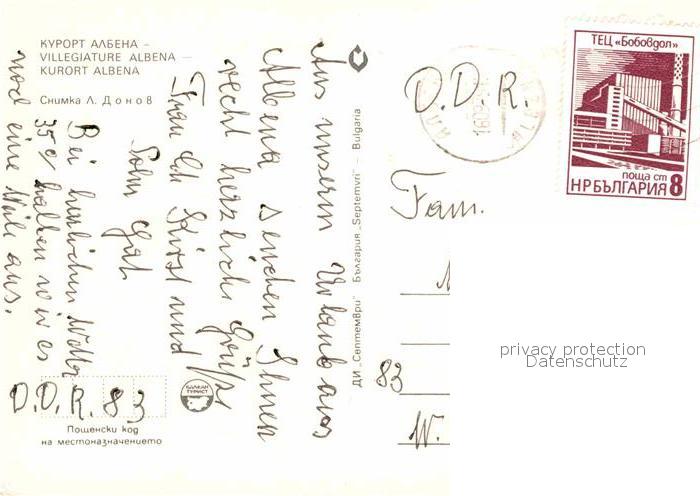 КУРОРТ АЛБЕНА –
VILLEGIATURE ALBENA –
KURORT ALBENA
Снимка Л. Донов
Aus unserm Urlaub aus
Albena senden Ihnen
recht herzliche Grüße
Frau
und
Sohn
Bei herrlichem Wetter
35 C halten wir es
noch eine Weile aus.
D.D.R. 83
Пощенски код
на местоназначението
БАЛКАН
ТУРИСТ
ДИ „Септември" България „Septemvri" – Bulgaria
D.D.R.
Fam.
83
W.
ТЕЦ «Бобовдол»
поща ст
НР БЪЛГАРИЯ 8
privacy protection
Datenschutz